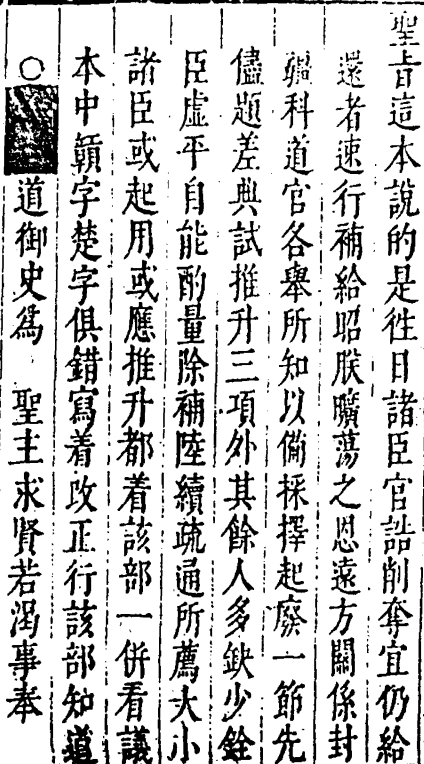 聖旨這本說的是徃日諸臣官誥削奪宜仍給
還者速行補給昭朕曠蕩之恩遠方關係封
疆科道官各舉所知以俻採擇起廢一節先
儘題差典試推升三項外其餘人多缺少銓
臣虛平自能酌量除補陸續疏通所薦大小
諸臣或起用或應推升都着該部一併看議
本中顗字楚字俱錯寫着改正行該部知道
○道御史爲 聖主求賢若渴事奉